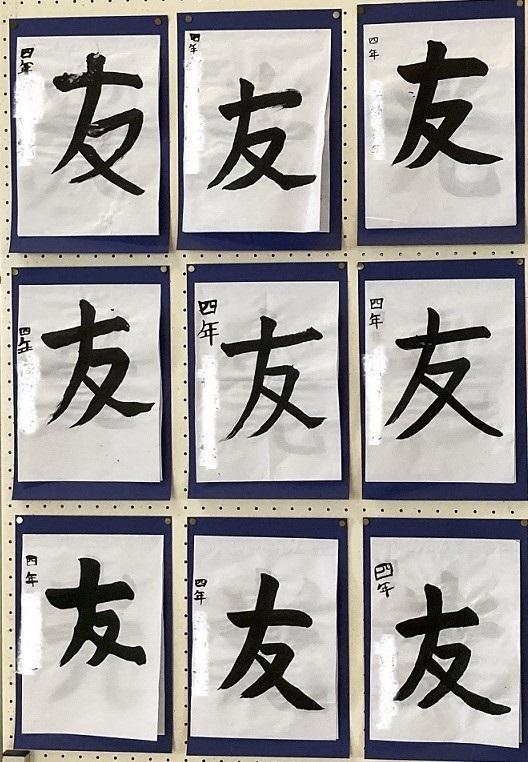 四年
友
四年
友
四年
友
四年
友
四年
友
四年
友
四年
友
四年
友
四年
友